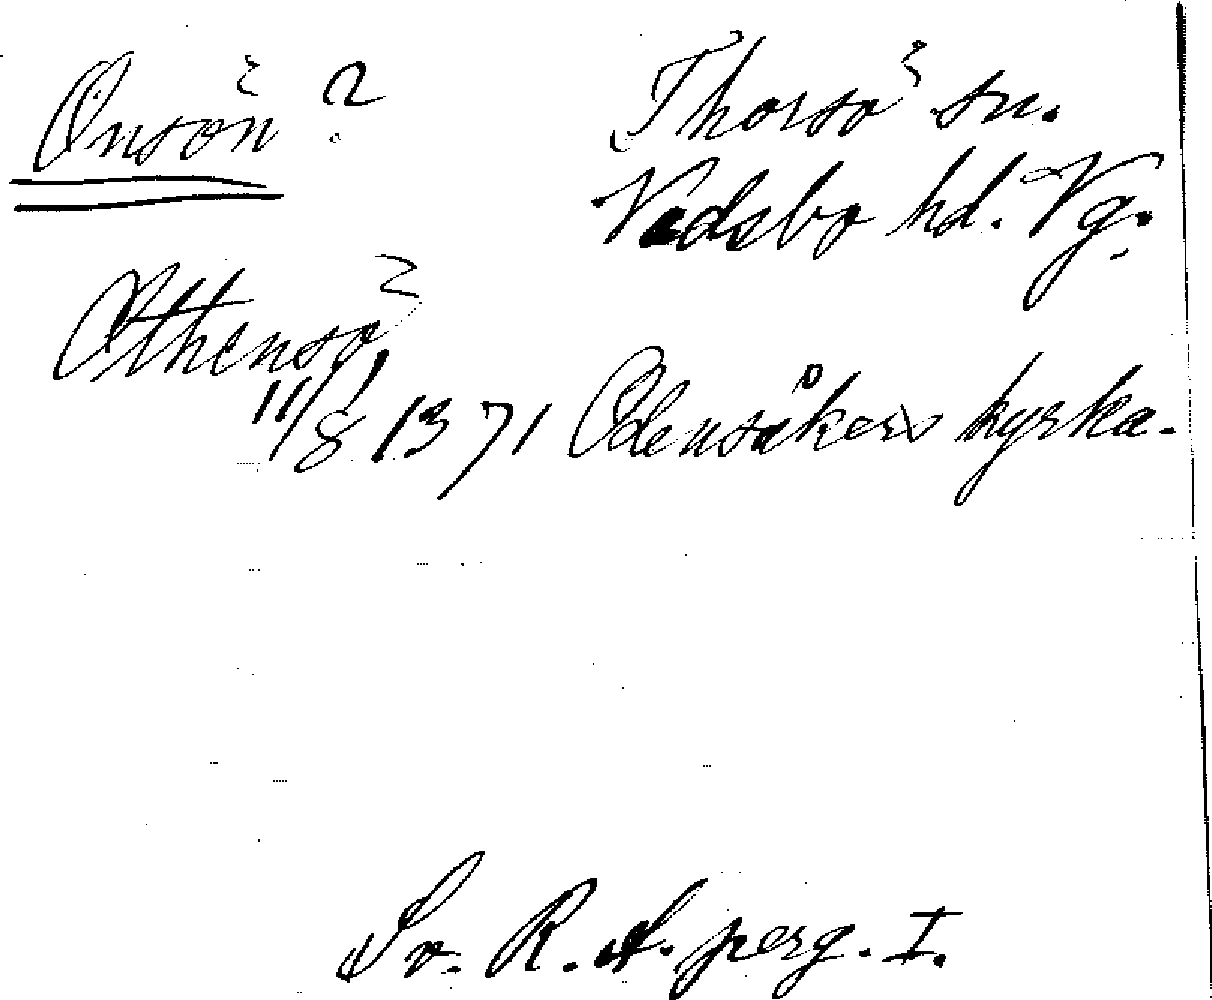 Onsön?
Thorsö sn.
Vadsbo hd. Vg.
Othensö,
11/8 1371 Odensåkers kyrka.
Sv. R. A. perg. I.